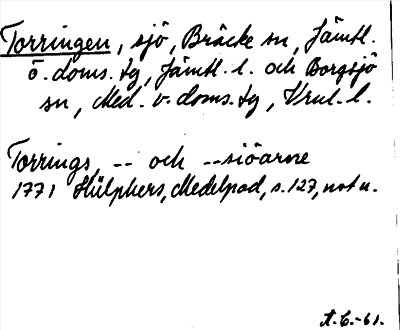 Torringen, sjö, Bräcke sn, Jämtl.
ö. doms. tg, Jämtl. l. och Borgsjö
sn, Med. v. doms. tg, Vrnl. l.
Torrings, -- och --siöarne
1771 Hülphers, Medelpad, s. 127, not u.
A.C.-61.